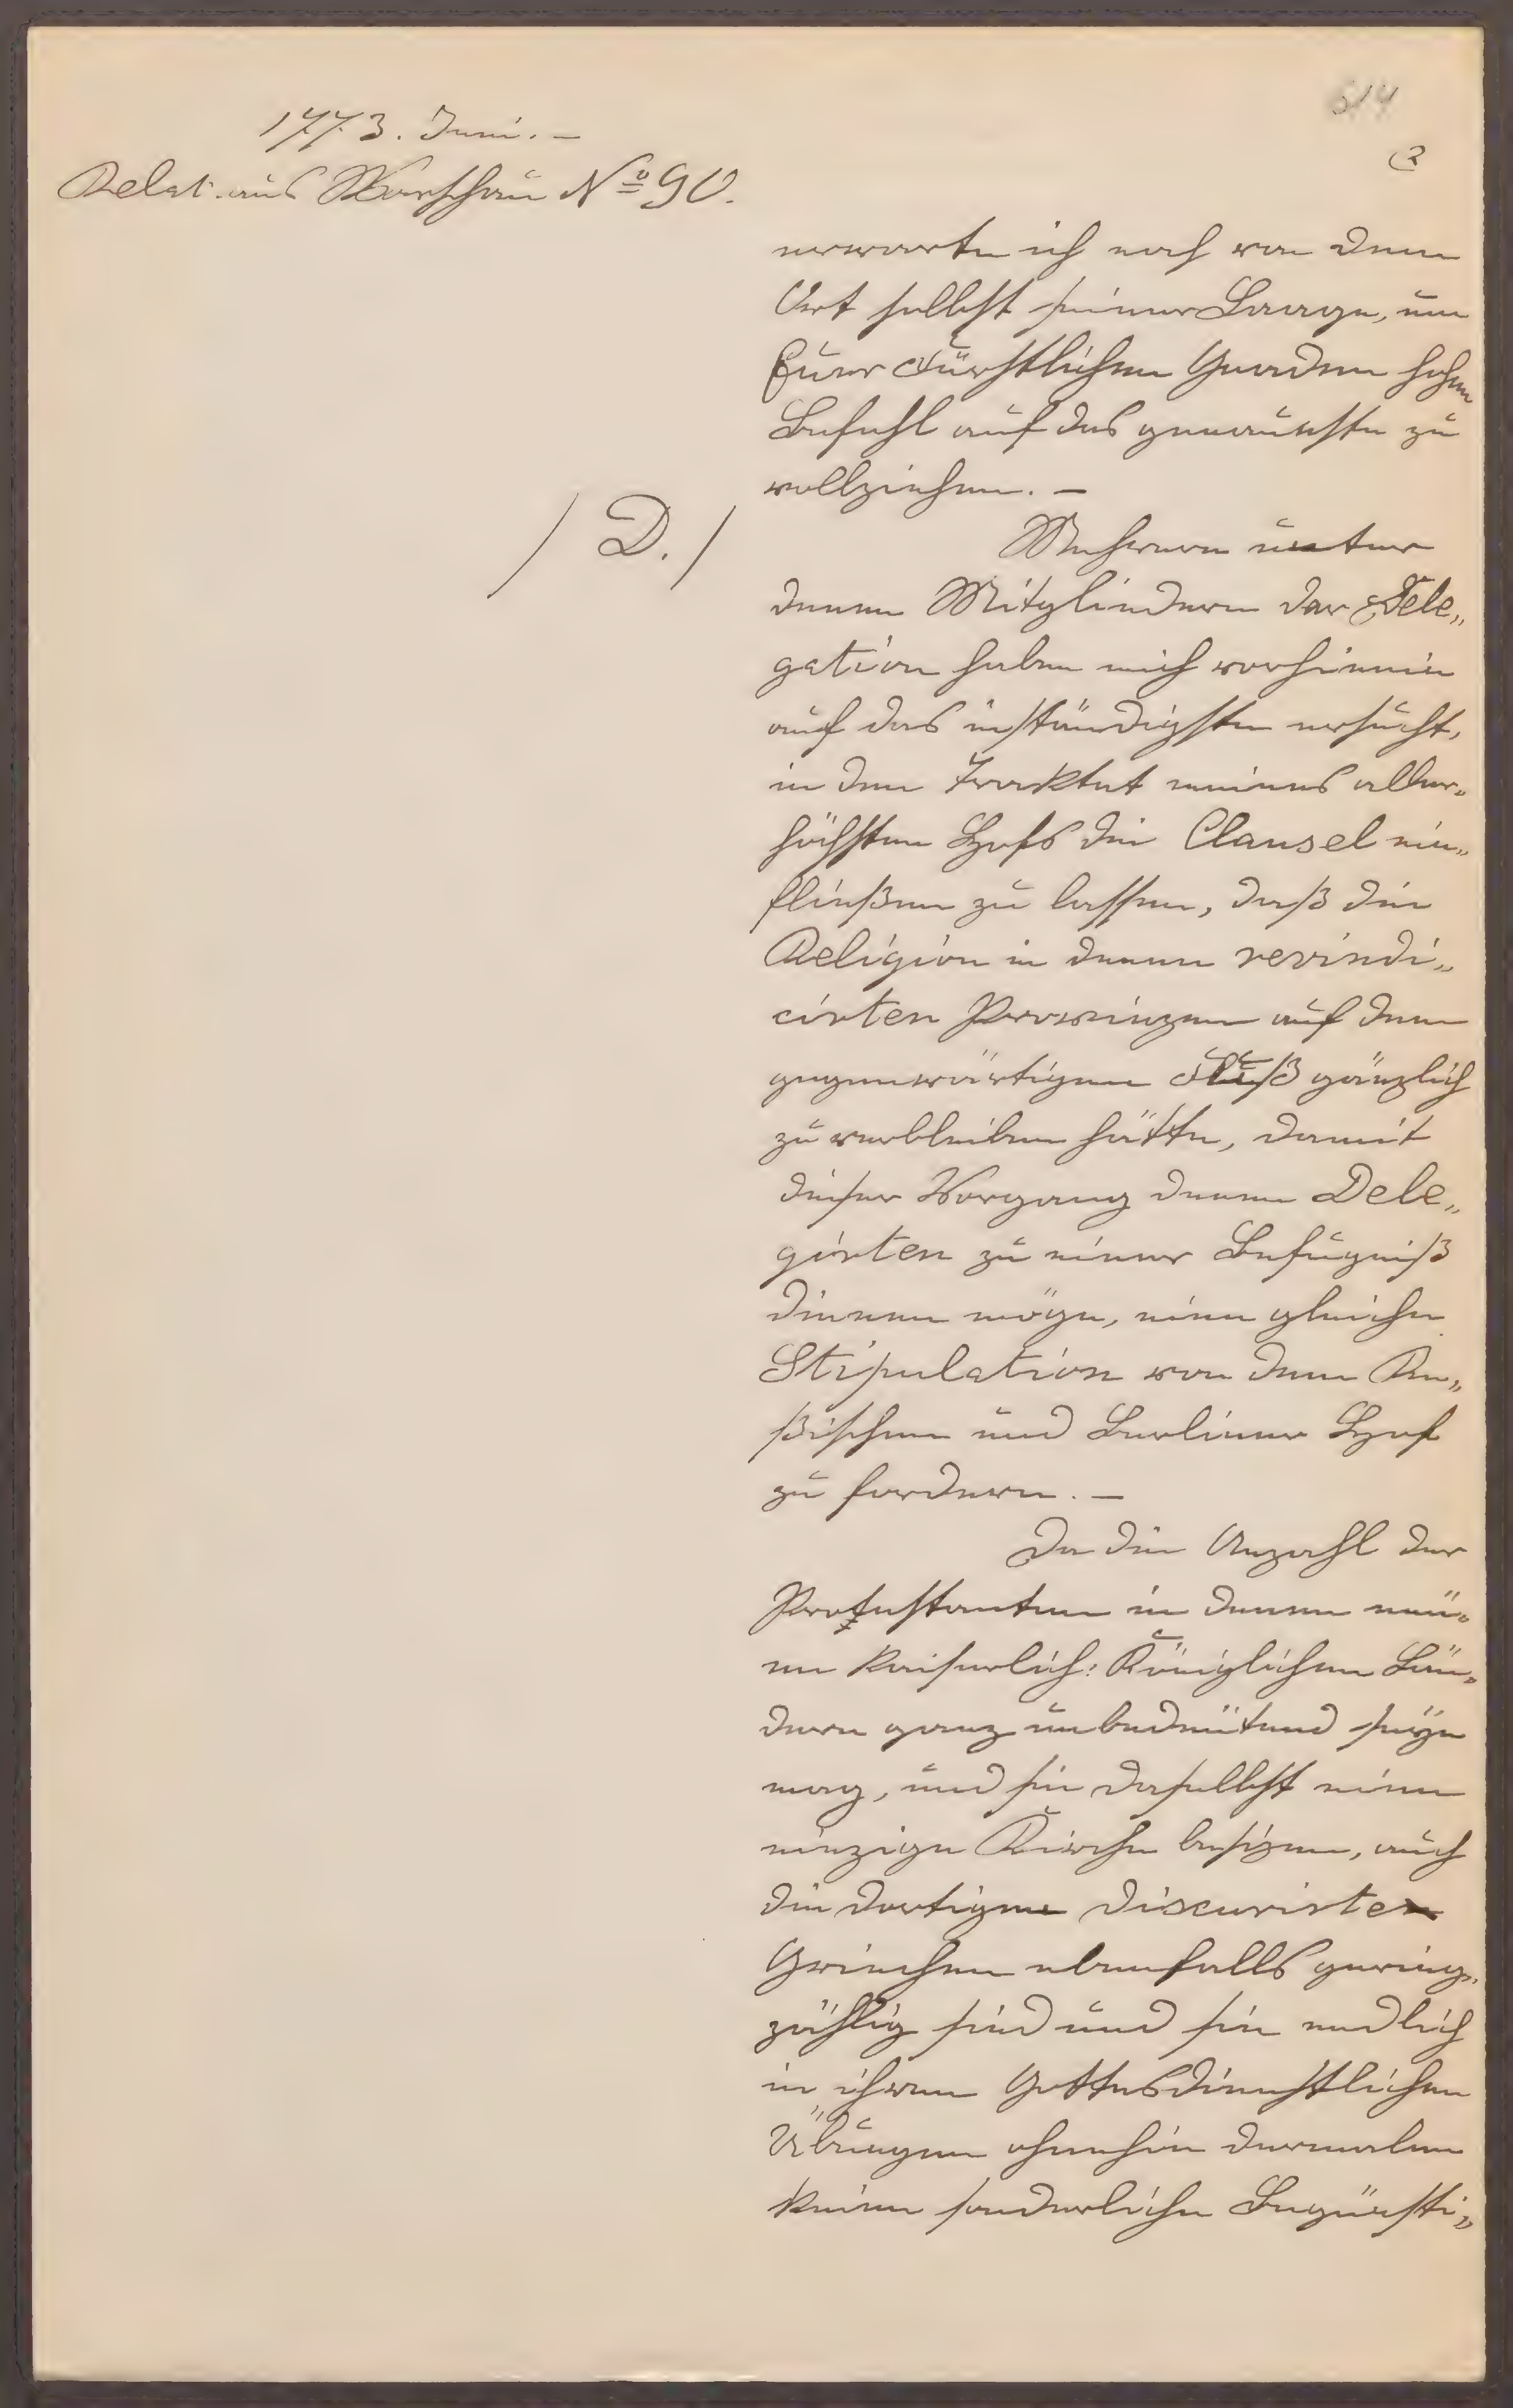 614
2
1773. Juni. –
Relat. aus Warschau No 90.
erwarte ich noch von dem
Ort selbst seiner Laage, um
Euer Fürstlichen Gnaden hohen
Befehl auf das genaueste zu
vollziehen. –
/ D. /
Mehrere unter
denen Mitgliedern der Dele„
gation haben mich vorhinein
auf das inständigste ersucht,
in den Traktat meines aller„
höchsten Hofs die Clausel ein„
fließen zu lassen, daß die
Religion in denen revindi„
cirten Provinzen auf dem
gegenwärtigen Fuß gänzlich
zu verbleiben hätte, damit
dieser Vorgang denen Dele„
girten zu einer Befugniß
dienen möge, eine gleiche
Stipulation von dem Ru„
ßischen und Berliner Hof
zu fordern. –
Da die Anzahl der
Protestanten in denen neü„
en Kaiserlich: Königlichen Län„
dern ganz unbedeütend seÿn
mag, und sie daselbst eine
einzige Kirche besizen, auch
die dortigen discurirten
Griechen ebenfalls gering„
zählig sind und sie endlich
in ihren Gottesdienstlichen
Übungen ohnehin dermalen
keine sonderliche Begünsti„